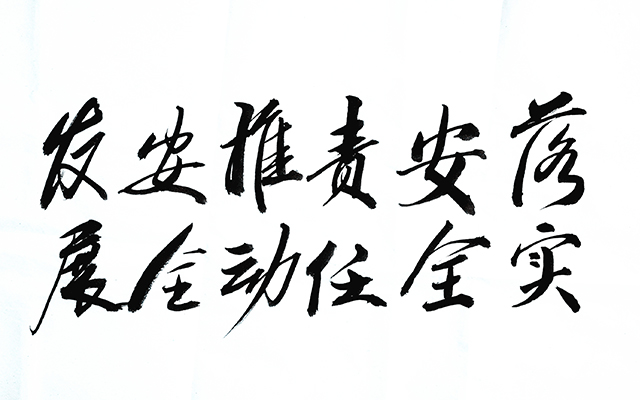 落实
安全
责任
推动
安全
发展